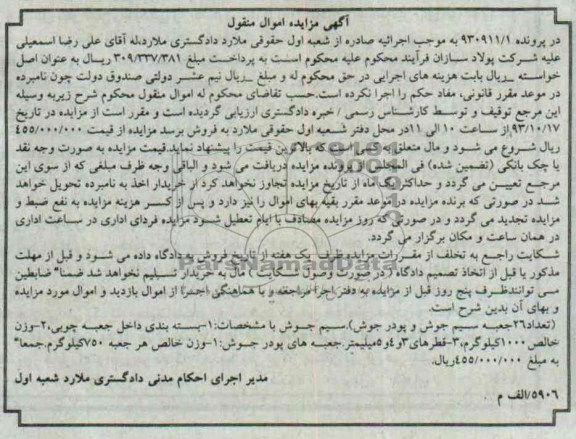 آگهی مزایده اموال منقول
در پرونده ۹۳۰۹۱۱/۱ به موجب اجرائیه صادره از شعبه اول حقوقی ملارد دادگستری ملارد،له آقای علی رضا اسمعیلی
علیه شرکت پولاد سازان فرآیند محکوم علیه محکوم است به پرداخت مبلغ ۳۰۹/۳۳۷/۳۸۱ ریال به عنوان اصل
خواسته _ریال بابت هزینه های اجرایی در حق محکوم له و مبلغ _ریال نیم عشر دولتی صندوق دولت چون نامبرده
در موعد مقرر قانونی، مفاد حکم را اجرا نکرده است.حسب تقاضای محکوم له اموال منقول محکوم شرح زیربه وسیله
این مرجع توقیف و توسط کارشناس رسمی / خبره دادگستری ارزیابی گردیده است و مقرر است از مزایده در تاریخ
۹۳/۱۰/۱۷از ساعت ۱۰ الی ۱۱در محل دفتر شعبه اول حقوقی ملارد به فروش برسد مزایده از قیمت ۴۵۵/۰۰۰/۰۰۰
ریال شروع می شود و مال متعلق به کسی است که بالاترین قیمت را پیشنهاد نماید.قیمت مزایده به صورت وجه نقد
یا چک بانکی (تضمین شده) فی المجلس از برنده مزایده دریافت می شود و الباقی وجه ظرف مبلغی که از سوی این
مرجع تعیین می گردد و حداکثر یک ماه از تاریخ مزایده تجاوز نخواهد کرد از خریدار اخذ به نامبرده تحویل خواهد
شد در صورتی که برنده مزایده در موعد مقرر بقیه بهای اموال را نیز دارد و پس از کسر هزینه مزایده به نفع ضبط و
مزایده تجدید می گردد و در صورتی که روز مزایده مصادف با ایام تعطیل شود مزایده فردای اداری در ساعت اداری
در همان ساعت و مکان برگزار می گردد.
شکایت راجع به تخلف از مقررات مزایده ظرف یک هفته از تاریخ فروش به دادگاه داده می شود و قبل از مهلت
مذکور یا قبل از اتخاذ تصمیم دادگاه در صورت وصول شکایت مال به خریدار تسلیم نخواهد شد ضمنا" ضابطین
می توانندظرف پنج روز قبل از مزایده به دفتر اجرا مراجعه و با هماهنگی اجرا از اموال بازدید و اموال مورد مزایده
و بهای آن بدین شرح است.
(تعداد۲۶جعبه سیم جوش و پودر جوش).سیم جوش با مشخصات:۱-بسته بندی داخل جعبه چوبی،۲-وزن
خالص ۱۰۰۰کیلوگرم،۳-قطرهای۳و۴و۵میلیمتر.جعبه های پودر جوش:۱-وزن خالص هر جعبه ۷۵۰کیلوگرم.جمعا"
به مبلغ ۴۵۵/۰۰۰/۰۰۰ریال.
مدیر اجرای احکام مدنی دادگستری ملارد شعبه اول
۵۹۰۶/الف م